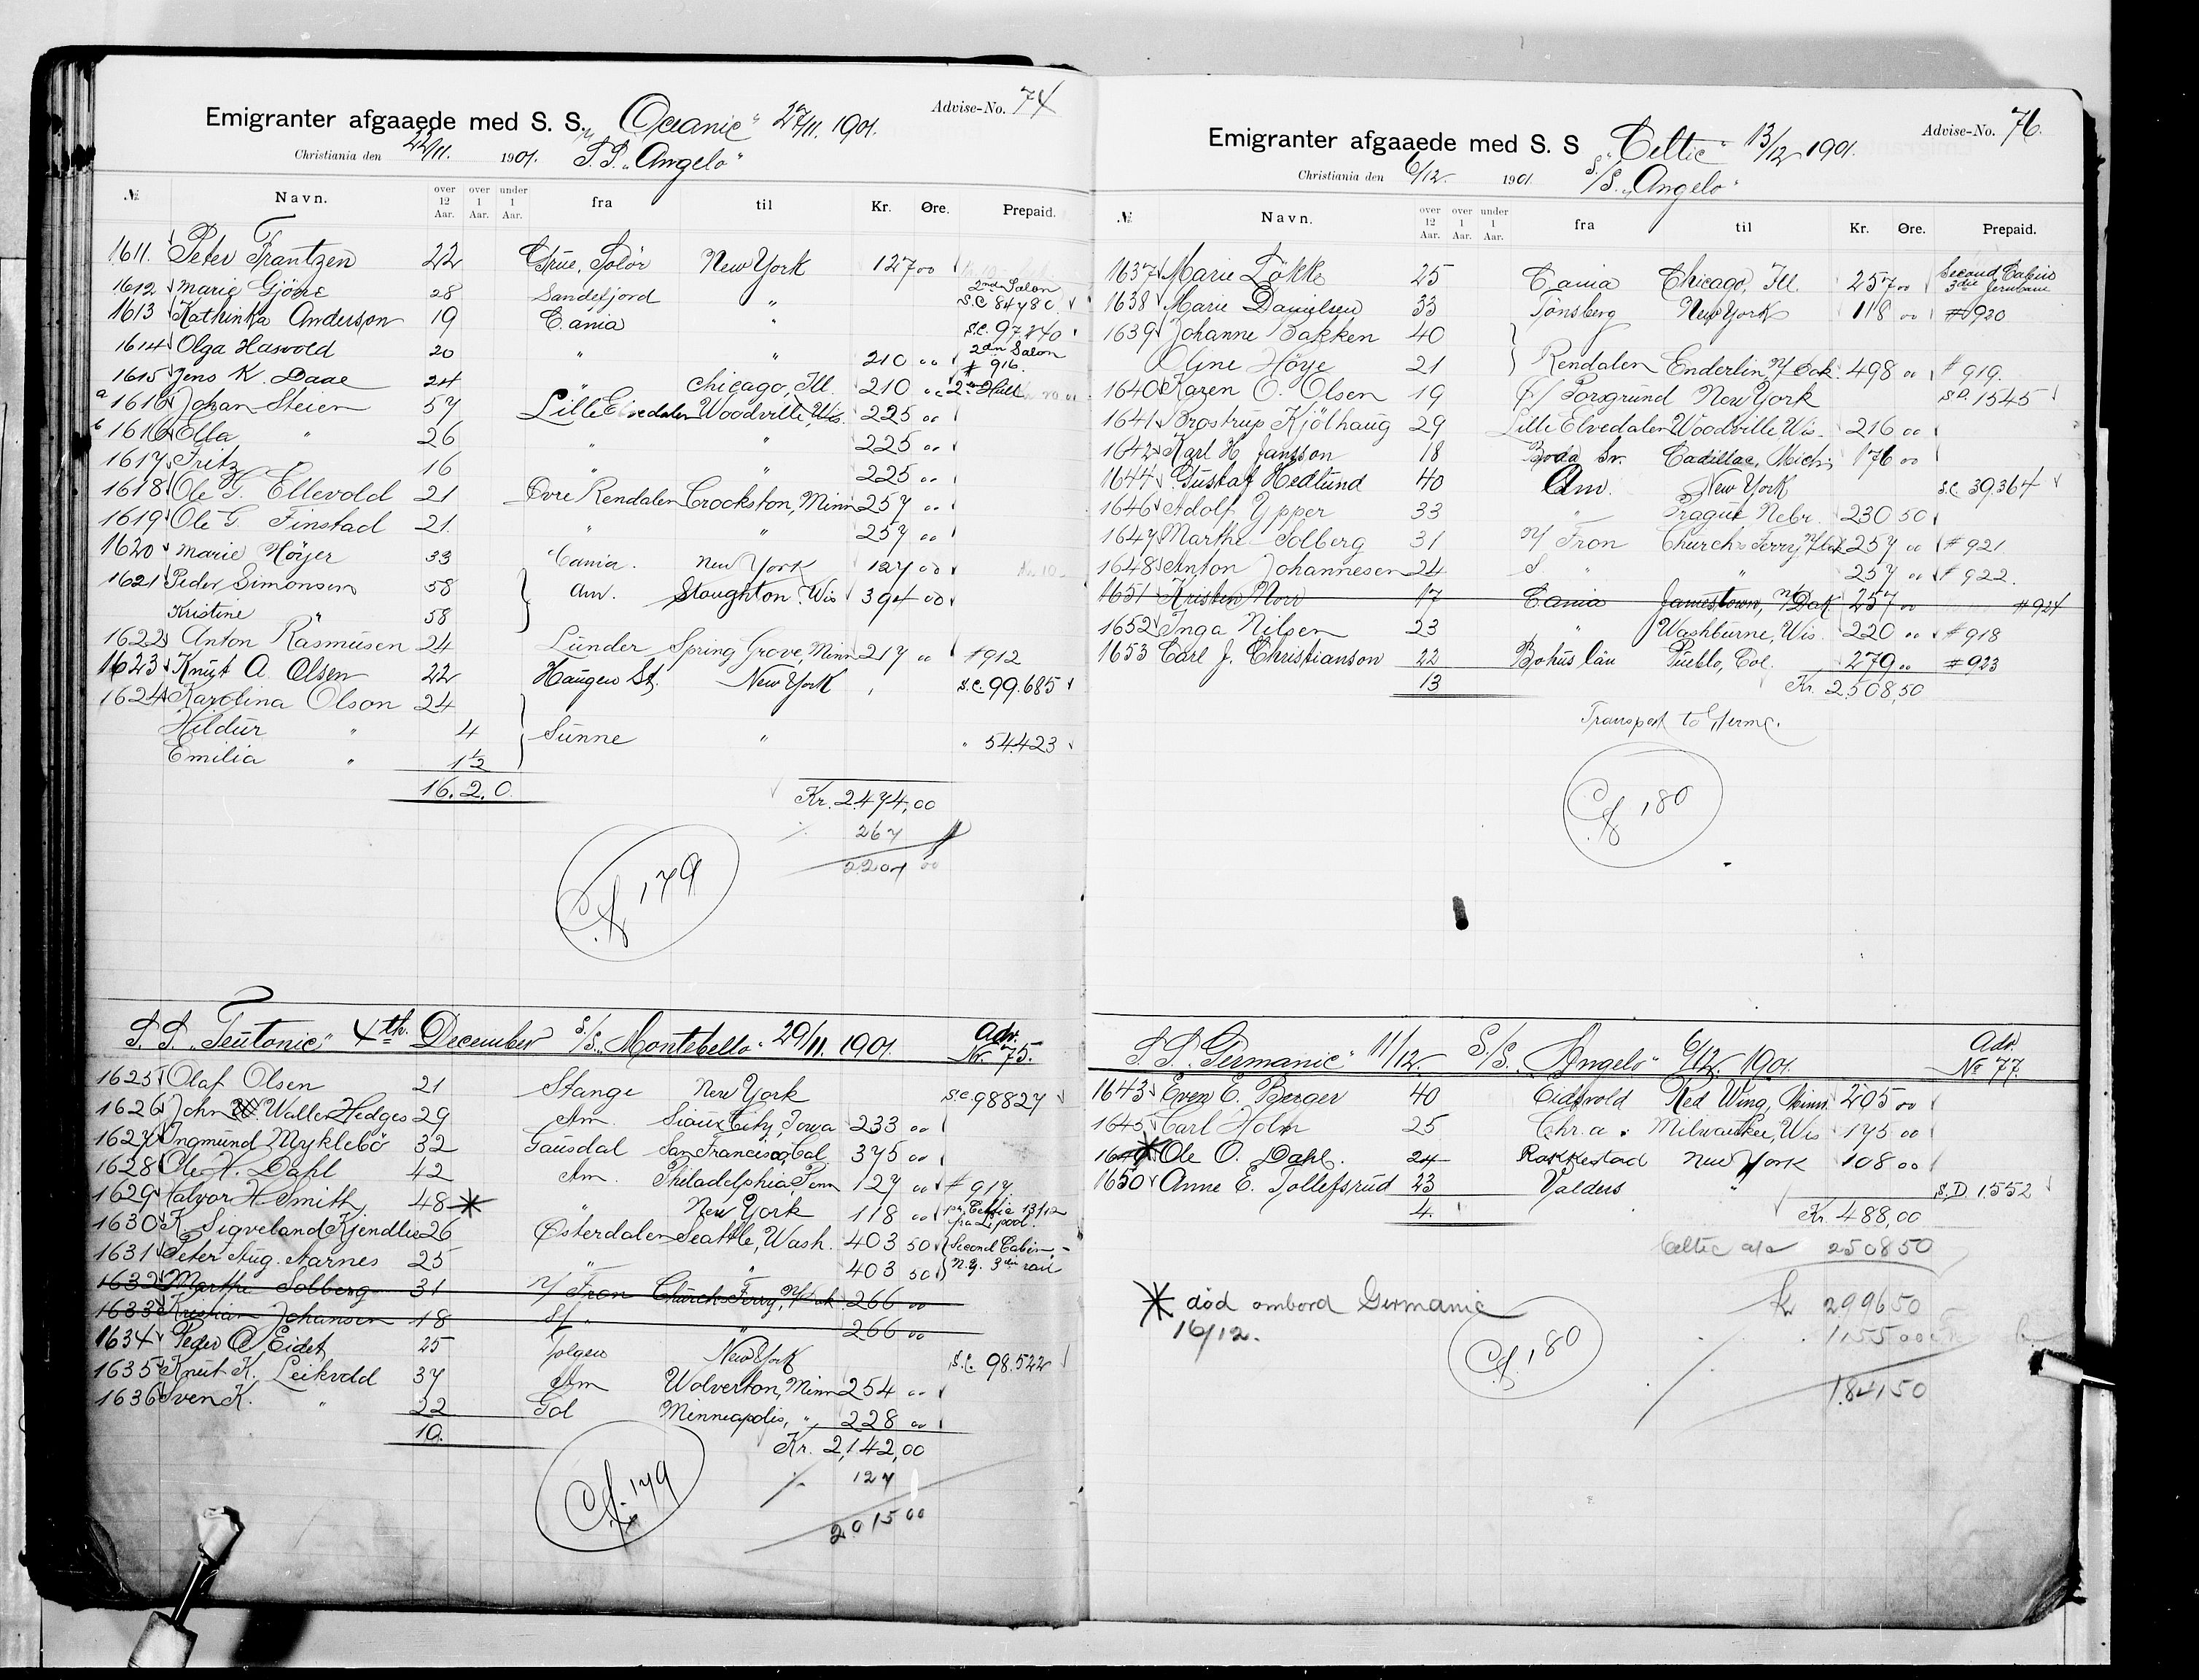 Emigranter afgaaede med S. S. "Oceanic" 27/11. 1901. Advise-No. 74
Christiania den 22/11. 1901. S.S. "Angelo"
№ Navn. over 12 Aar. over 1 Aar. under 1 Aar. fra til Kr. Øre. Prepaid.
1611. Peter Frantzen 22 Grue, Solör New York 127 00
1612 Marie Gjöne 28 Sandefjord " 2nd Salon S.C. 84780
1613 Kathinka Anderson 19 C.ania " S.C. 97240
1614 Olga Hasvold 20 " " 210 00 2den Salon # 916.
1615 Jens K. Daae 24 " Chicago, Ill. 210 00
a 1616 Johan Steien 57 Lille Elvedalen Woodville, Wis. 225 00
b 1616 Ella " 26 " " 225 00
1617 Fritz " 16 " " 225 00
1618 Ole G. Ellevold 21 Övre Rendalen Crookston, Minn 257 00
1619 Ole G. Finstad 21. " " 257 00
1620 Marie Höyer 33 C.ania. New York 127 00
1621 Peder Simonsen 58 Am. Stoughton. Wis 394 00
Kristine " 58
1622 Anton Rasmusen 24 Lunder Spring Grove, Minn 217 00 #912
1623 Knut A. Olsen 22 Haugen St. New York " S.C. 99.685
1624 Karolina Olson 24
Hildur " 4 Sunne " " 54423
Emilia " 1½
16. 2. 0. Kr. 2474,00
267
2207 00
Cf. 179
S.S. "Teutonic" 4th December S/S. "Montebello" 29/11. 1901. Adv. Nr. 75.
1625 Olaf Olsen 21 Stange New York S.C. 98827
1626 John Waller Hedges 29 Am. Sioux City, Iowa 233 00
1627 Ingmund Myklebö 32 Gausdal San Francisco, Cal. 375 00
1628 Ole H. Dahl 42 Am. Philadelphia, Penn 127 00 # 917
1629 Halvor H. Smith 48 * " New York 118 00 pr. Celtic 13/12 fra L'pool.
1630 K. Sigveland Kjendlie 26 Österdalen Seattle, Wash. 403 50 Second Cabin,
1631 Peter Aug. Aarnes 25 " " 403 50 N.Y. 3die rail
1632 Marthe Solberg 31 N/ Fron Church's Ferry, N/Dak. 266 00
1633 Kristian Johansen 18 S/ " " 266 00
1634 Peder O Eidet 25 Tolgen New York S.C. 98.522
1635 Knut K. Leikvold 37 Am Wolverton, Minn 254 00
1636 Sven K. " 22 Gol Minneapolis, " 228 00
10. Kr. 2,142,00
127
2015 00
Cf. 179
Emigranter afgaaede med S. S "Celtic" 13/12 1901. Advise-No. 76.
Christiania den 6/12. 1901. S/S. "Angelo"
№ Navn. over 12 Aar. over 1 Aar. under 1 Aar. fra til Kr. Øre. Prepaid.
1637 Marie Lökke 25 C.ania Chicago, Ill. 257 00 Second Cabin 3die Jernbane
1638 Marie Danielsen 33 Tönsberg New York 118 00 #920
1639 Johanne Bakken 40
Oline Höye 21 Rendalen Enderlin, N/Dak. 498 00 # 919.
1640 Karen O. Olsen 19 Porsgrund New York S.D. 1545
1641 Brostrup Kjölhaug 29 Lille Elvedalen Woodville Wis. 216 00
1642 Karl H. Jansson 18 Boda Sv. Cadillac, Mich. 176 00
1644 Gustaf Hedlund 40 Am. New York S.C. 39.364
1646 Adolf Ypper 33 " Prague Nebr. 230 50
1647 Marthe Solberg 31 N/ Fron Church's Ferry N/Dak 257 00 # 921
1648 Anton Johannesen 24 S. " " 257 00 # 922.
1651 Kristen Norr 17 C.ania Jamestown, N/Dak 257 00 #924
1652 Inga Nilsen 23 " Washburne, Wis. 220 00 #918
1653 Carl J. Christianson 22 Bohus län Pueblo, Col. 279 00 #923
13 Kr. 2508,50
Transport to Germc.
Cf. 180
S.S. "Germanic" 11/12. S/S. "Angelo" 6/12. 1901. Adv. № 77.
1643 Even E. Berger 40 Eidsvold Red Wing, Minn. 205 00
1645 Carl Holm 25 Chr.a. Milwaukee, Wis 175 00
* Ole O. Dahl. 24 Rakkestad New York 108 00
1650 Anne E. Tollefsrud 23 Valders " S.D. 1552
4. Kr. 488,00
Celtic 2508 50
Kr 2996 50
1155 00
1841 50
* död ombord Germanic
16/12.
Cf. 180